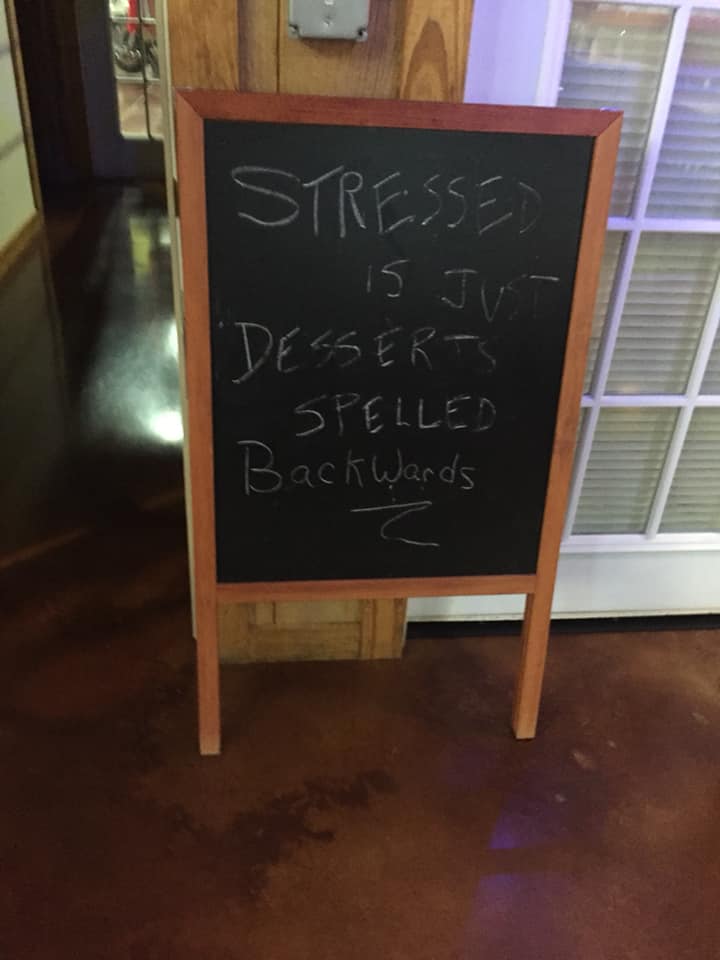 STRESSED
IS JUST
DESSERTS
SPELLED
BackWards